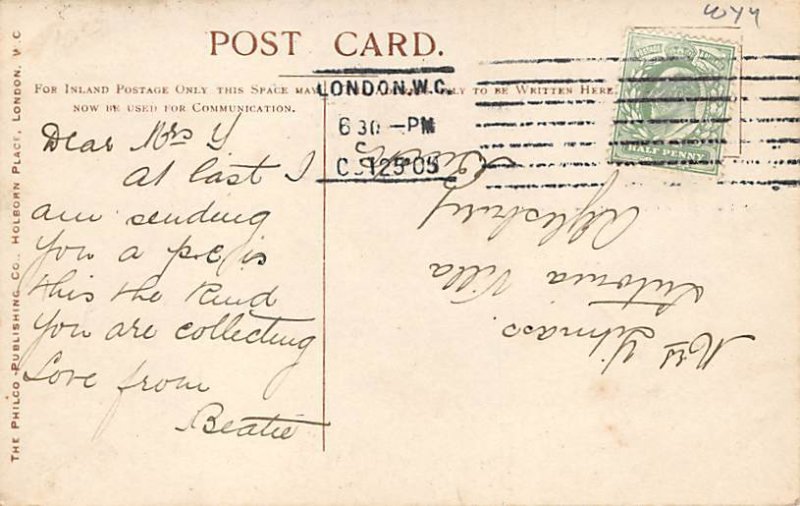 wyy
POST CARD.
FOR INLAND POSTAGE ONLY THIS SPACE MAY
NOW BE USED FOR COMMUNICATION.
LY TO BE WRITTEN HERE.
LONDON.W.C.
6 30 - PM
OC 25 05
POSTAGE
HALF PENNY
Dear Mrs Y
At last I
am sending
you a p.c is
this the kind
you are collecting
Love from
Beatie
Mrs
Villa
Aylesbury
Bucks
THE PHILCO PUBLISHING CO., HOLBORN PLACE, LONDON, W.C